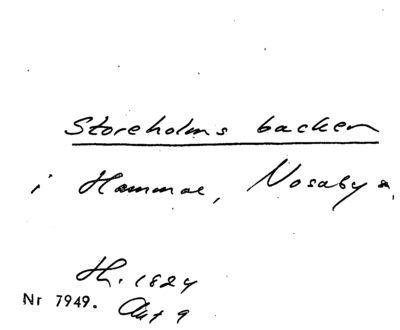 Storeholms backen
i Hammar, Nosaby s.
Lh. 1824
Nr 7949. Akt 9